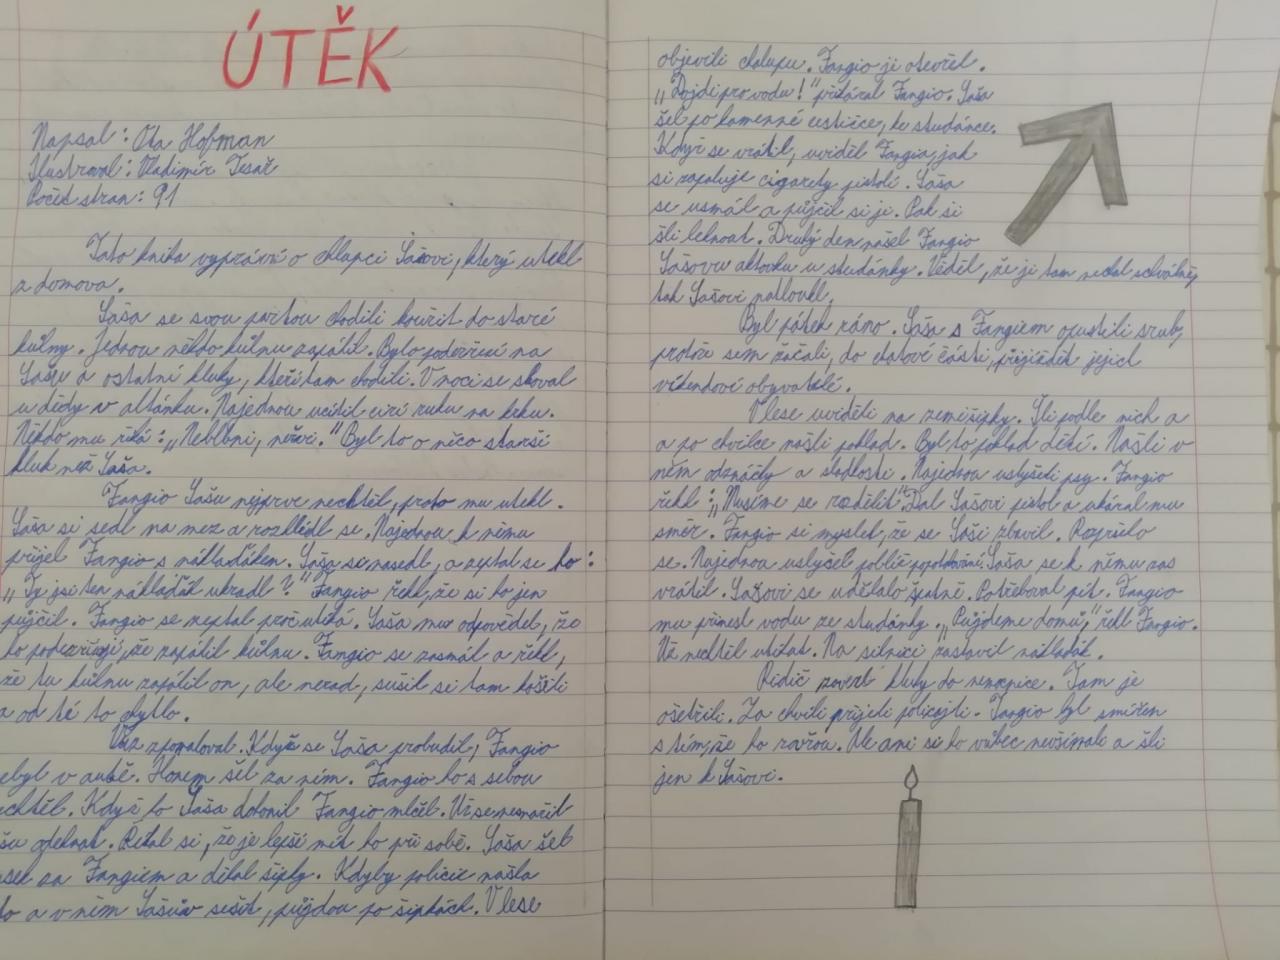 ÚTĚK
Napsal: Ota Hofman
Ilustroval: Vladimír Tesař
Počet stran: 91
Tato kniha vypráví o chlapci Sášovi, který utekl
z domova.
Sáša se svou partou chodili kouřit do staré
kůlny. Jednou někdo kůlnu zapálil. Bylo podezření na
Sášu a ostatní kluky, kteří tam chodili. V noci se schoval
u dědy v altánku. Najednou ucítil cizí ruku na krku.
Někdo mu řiká: „Neblbni, neřvi." Byl to o něco starší
kluk než Sáša.
Fangio Sášu nejprve nechtěl, proto mu utekl.
Sáša si sedl na mez a rozhlédl se. Najednou k němu
přijel Fangio s náklaďákem. Sáša si nasedl, a zeptal se ho:
„Ty jsi ten náklaďák ukradl?" Fangio řekl, že si ho jen
půjčil. Fangio se zeptal proč utíká. Sáša mu odpověděl, že
ho podezřívají, že zapálil kůlnu. Fangio se zasmál a řekl,
že tu kůlnu zapálil on, ale nerad, sušil si tam košili
a od té to chytlo.
Vůz zpomaloval. Když se Sáša probudil, Fangio
ebyl v autě. Honem šel za ním. Fangio ho s sebou
echtěl. Když ho Sáša dohonil Fangio mlčel. Už se nesnažil
šu odehnat. Říkal si, že je lepší mít ho při sobě. Sáša šel
za Fangiem a dělal šipky. Kdyby policie našla
to a v něm Sášův sešit, půjdou po šipkách. V lese
objevili chalupu. Fangio ji otevřel.
„Dojdi pro vodu!" přikázal Fangio. Sáša
šel po kamenné cestičce, ke studánce.
Když se vrátil, uviděl Fangia, jak
si zapaluje cigarety pistolí. Sáša
se usmál a půjčil si ji. Pak si
šli lehnout. Druhý den našel Fangio
Sášovu aktovku u studánky. Věděl, že ji tam nechal schválně,
tak Sášovi natloukl.
Byl pátek ráno. Sáša s Fangiem opustili srub,
protože sem začali, do chatové části, přijíždět jejich
víkendoví obyvatelé.
V lese uviděli na zemi šipky. Šli podle nich a
a po chvilce našli poklad. Byl to poklad dětí. Našli v
něm odznáčky a sladkosti. Najednou uslyšeli psy. Fangio
řekl: „Musíme se rozdělit." Dal Sášovi pistol a ukázal mu
směr. Fangio si myslel, že se Sáši zbavil. Rozpršelo
se. Najednou uslyšel poblíž Sáša se k němu zas
vrátil. Sášovi se udělalo špatně. Potřeboval pít. Fangio
mu přinesl vodu ze studánky. „Půjdeme domů," řekl Fangio.
Už nechtěl utíkat. Na silnici zastavil náklaďák.
Řidič zavezl kluky do nemocnice. Tam je
ošetřili. Za chvíli přijeli policajti. Fangio byl smířen
s tím, že ho zavřou. Ale ani si ho vůbec nevšímali a šli
jen k Sášovi.